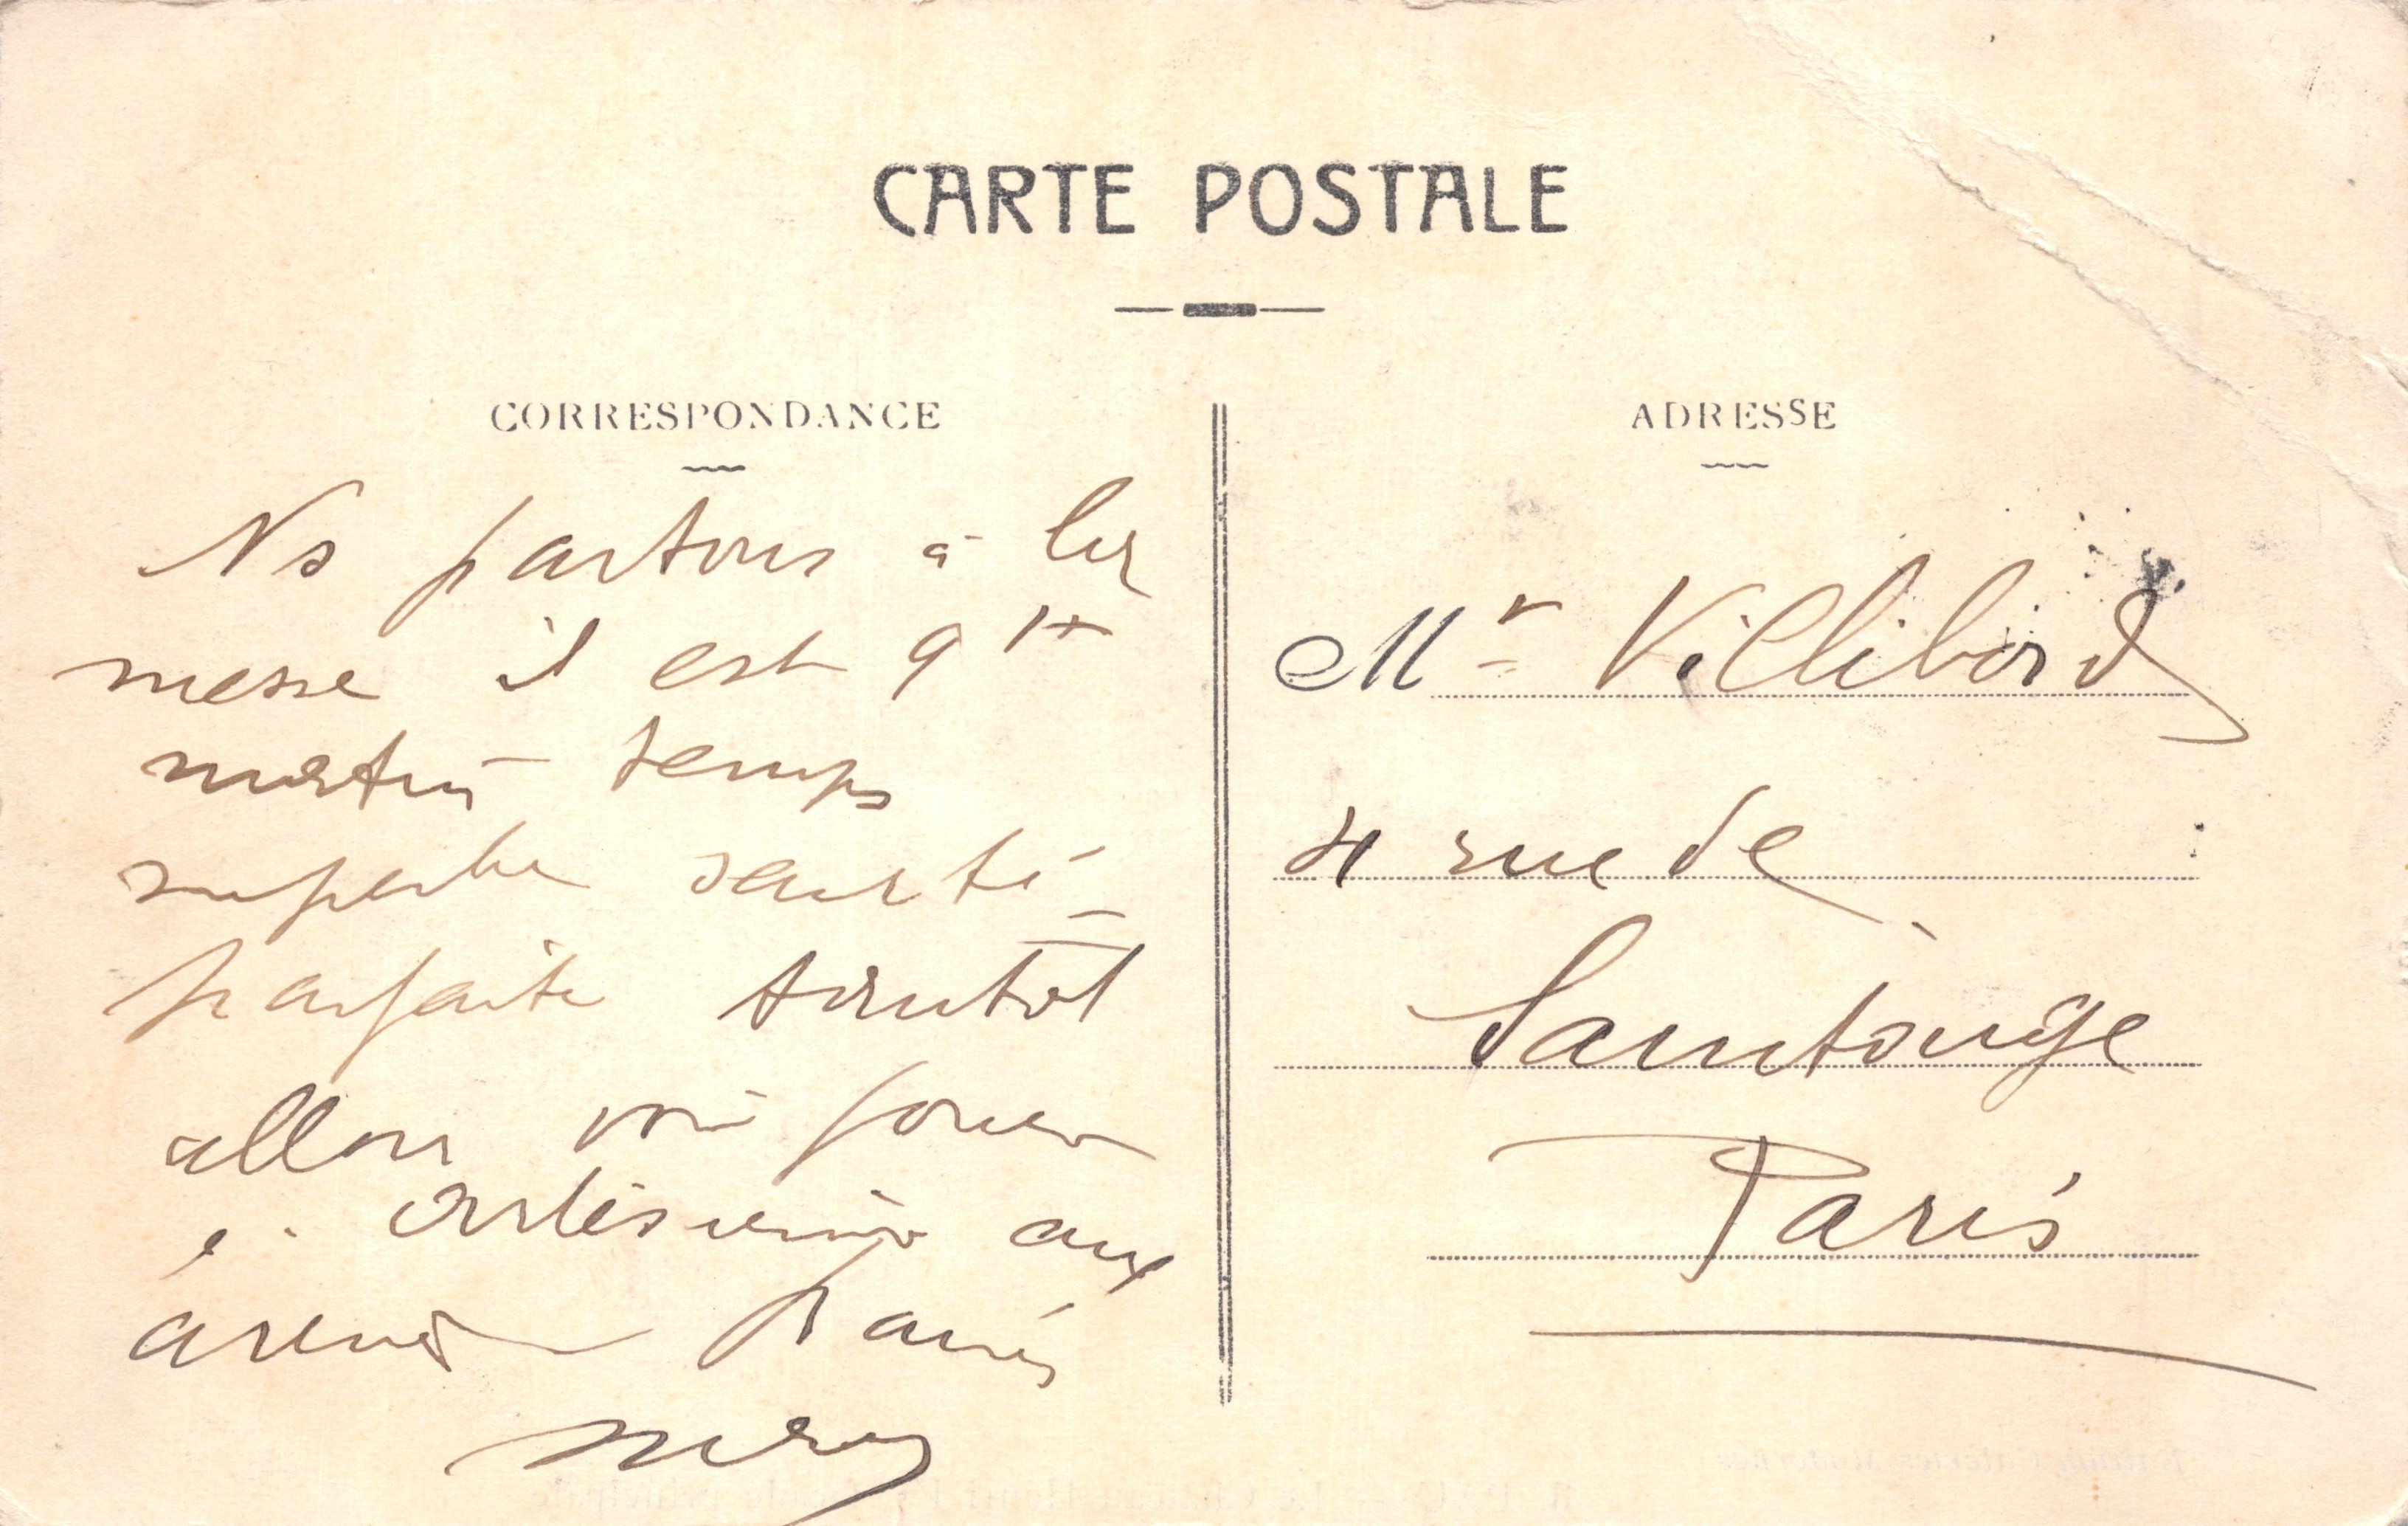 CARTE POSTALE
CORRESPONDANCE
Ns partons à la
messe il est 9 hs
matin temps
superbe santé
parfaite tantôt
allons voir jouer
l'arlésienne aux
arènes
ADRESSE
Mr Villibord
4 rue de
Saintonge
Paris